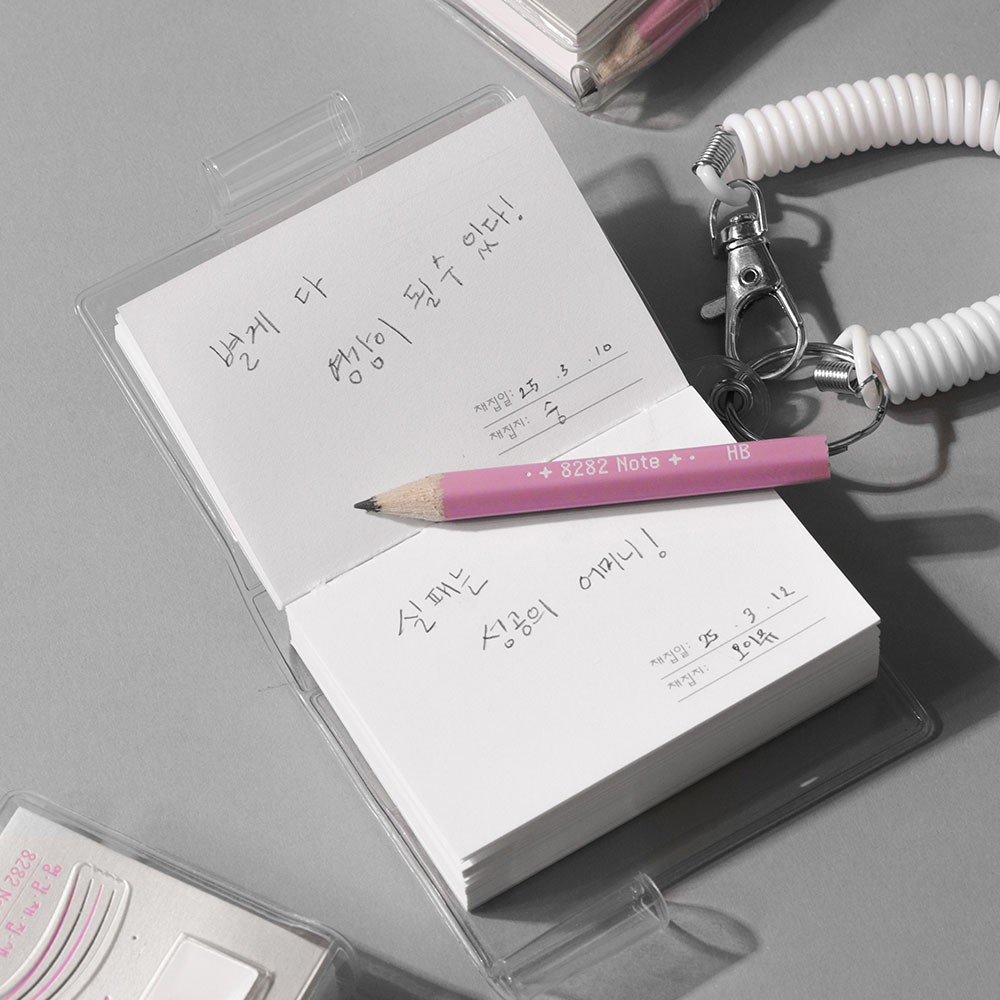 별게 다
영감이 될 수 있다!
채집일: 25 . 3 . 10
채집자: 숭
·+ 8282 Note +· HB
실패는
성공의 어머니!
채집일: 25 . 3 . 12
채집자: 오이뮤
8282 N